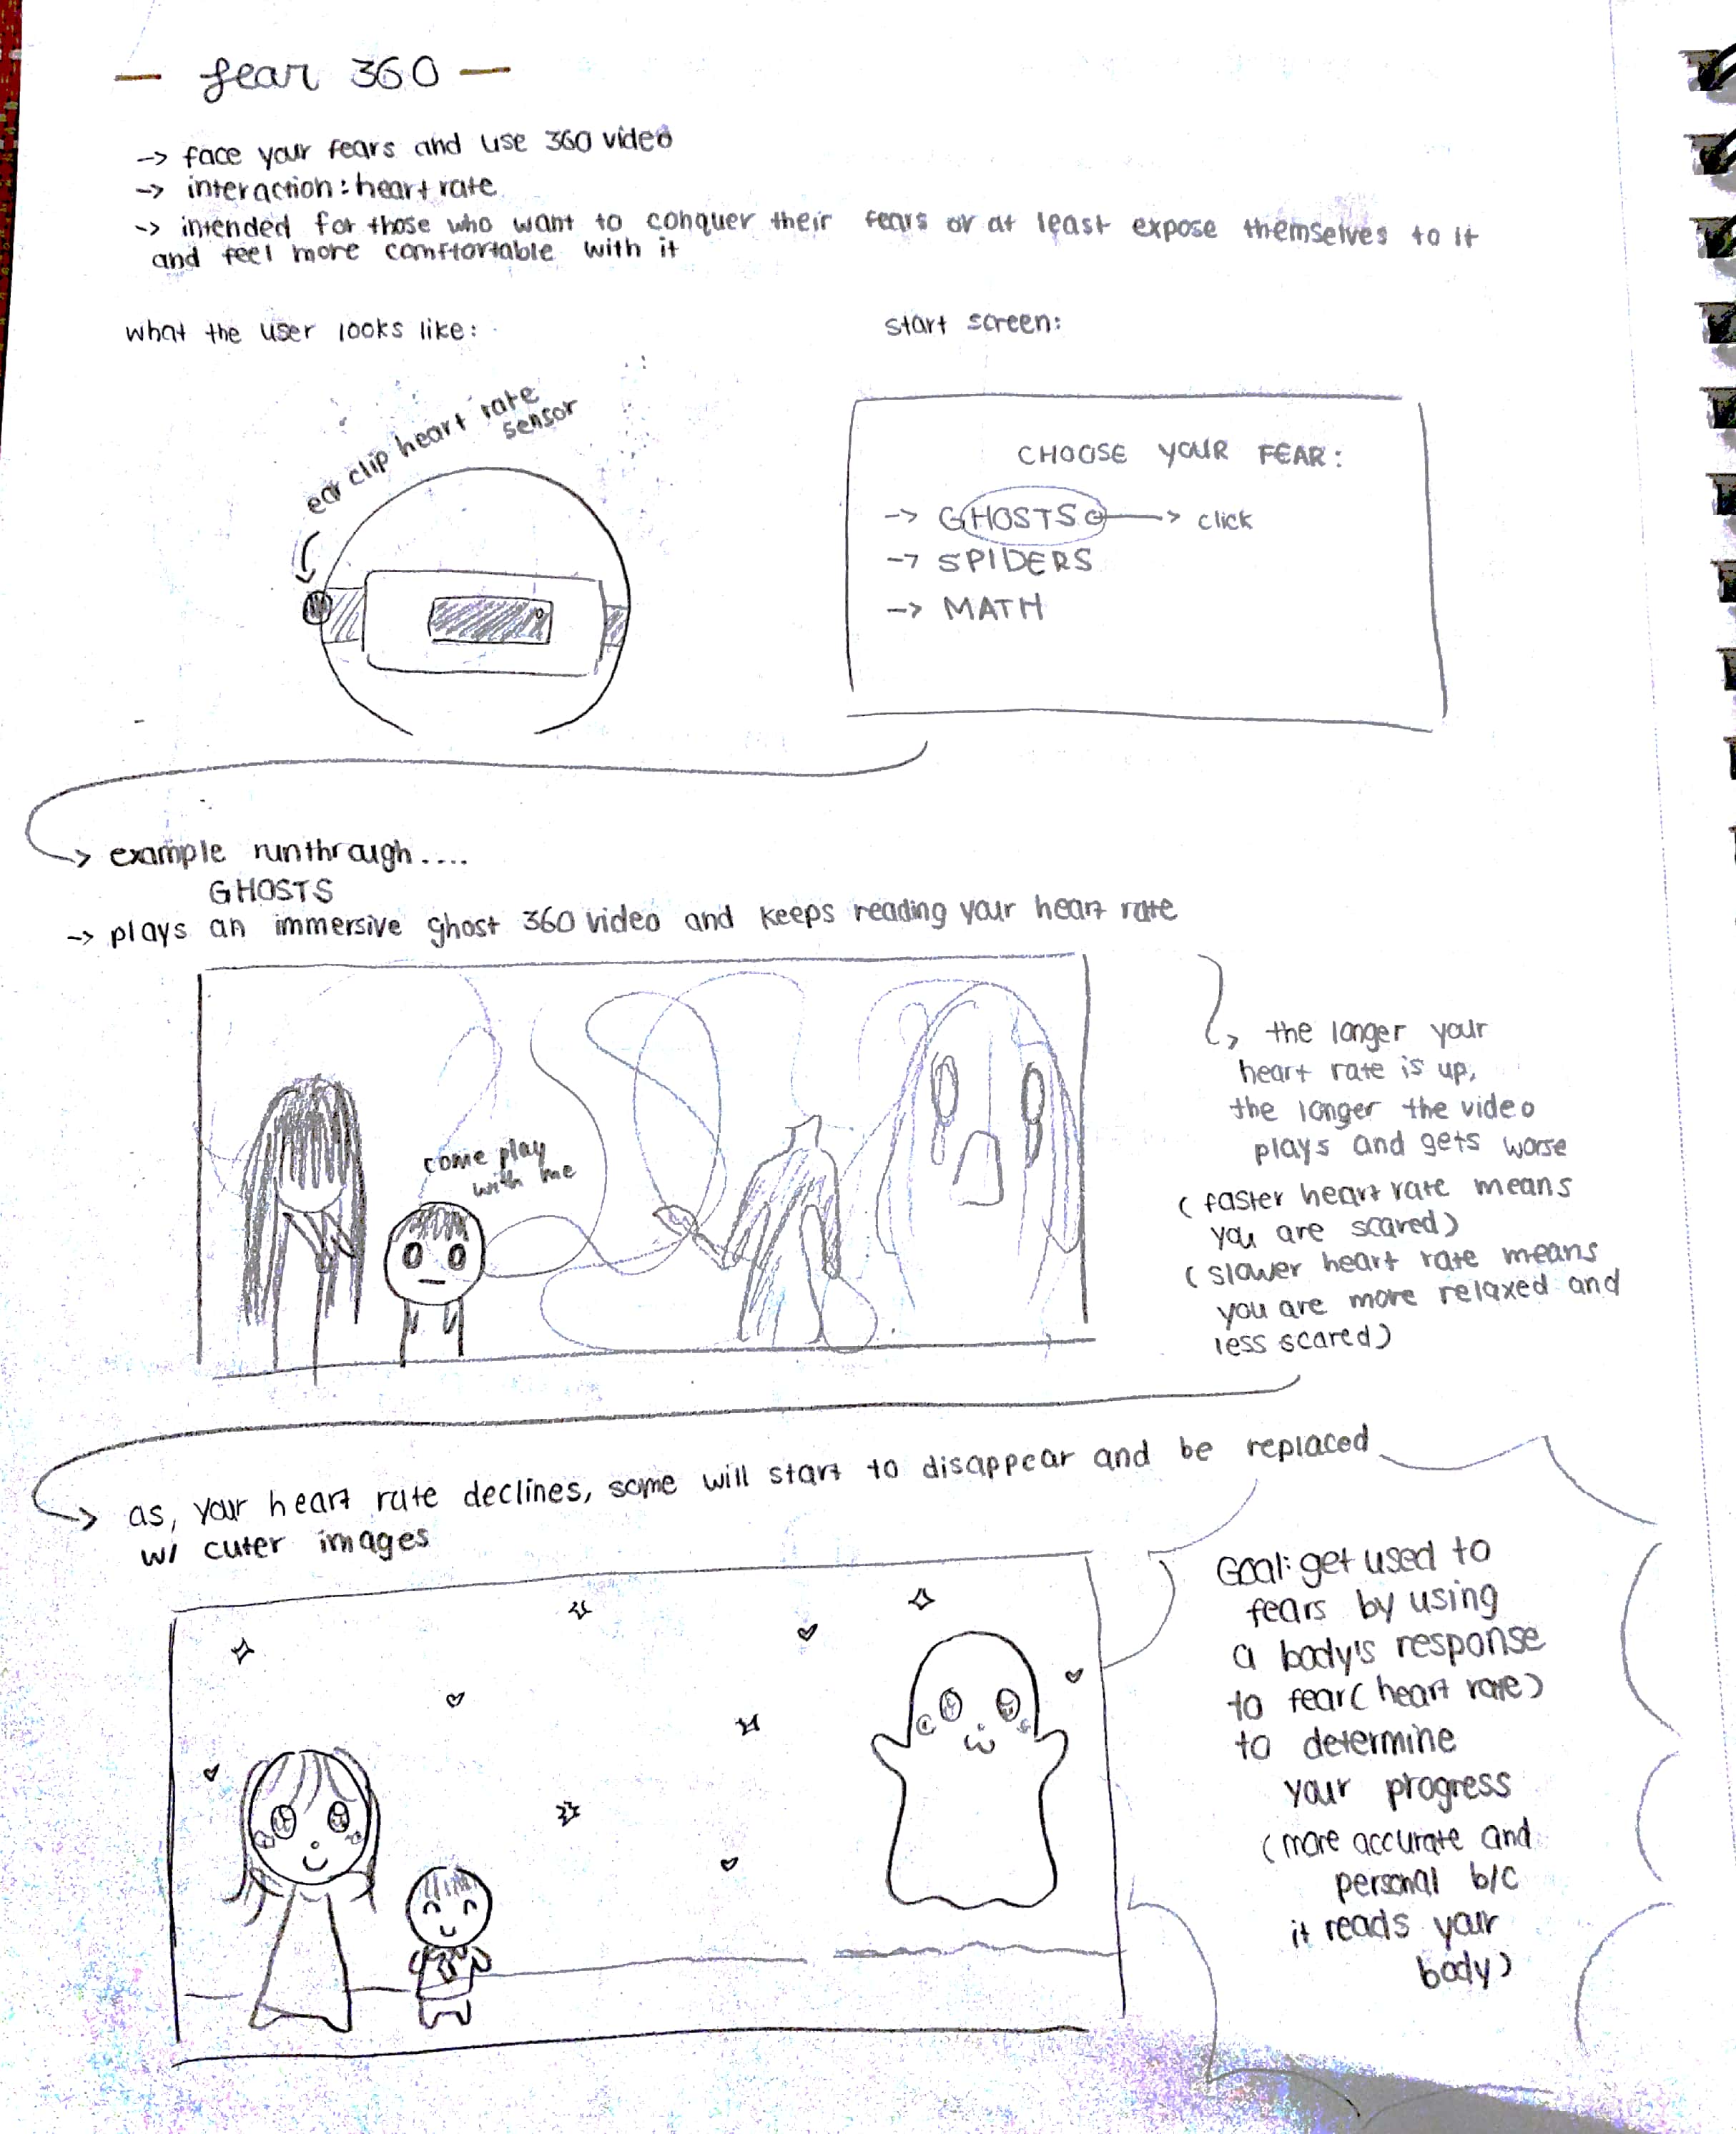 — fear 360 —
-> face your fears and use 360 video
-> interaction: heart rate
-> intended for those who want to conquer their fears or at least expose themselves to it
and feel more comftortable with it
what the user looks like:
ear clip heart rate
sensor
start screen:
CHOOSE YOUR FEAR:
-> GHOSTS -> click
-> SPIDERS
-> MATH
-> example runthrough....
GHOSTS
-> plays an immersive ghost 360 video and keeps reading your heart rate
come play
with me
-> the longer your
heart rate is up,
the longer the video
plays and gets worse
(faster heart rate means
you are scared)
(slower heart rate means
you are more relaxed and
less scared)
-> as, your heart rate declines, some will start to disappear and be replaced
w/ cuter images
Goal: get used to
fears by using
a body's response
to fear (heart rate)
to determine
your progress
(more accurate and
personal b/c
it reads your
body)